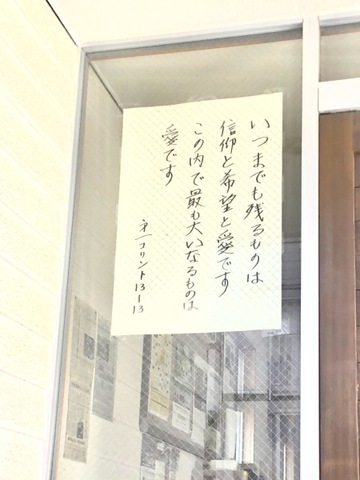 いつまでも残るものは
信仰と希望と愛です
この内で最も大いなるものは
愛です
オ一コリント13-13